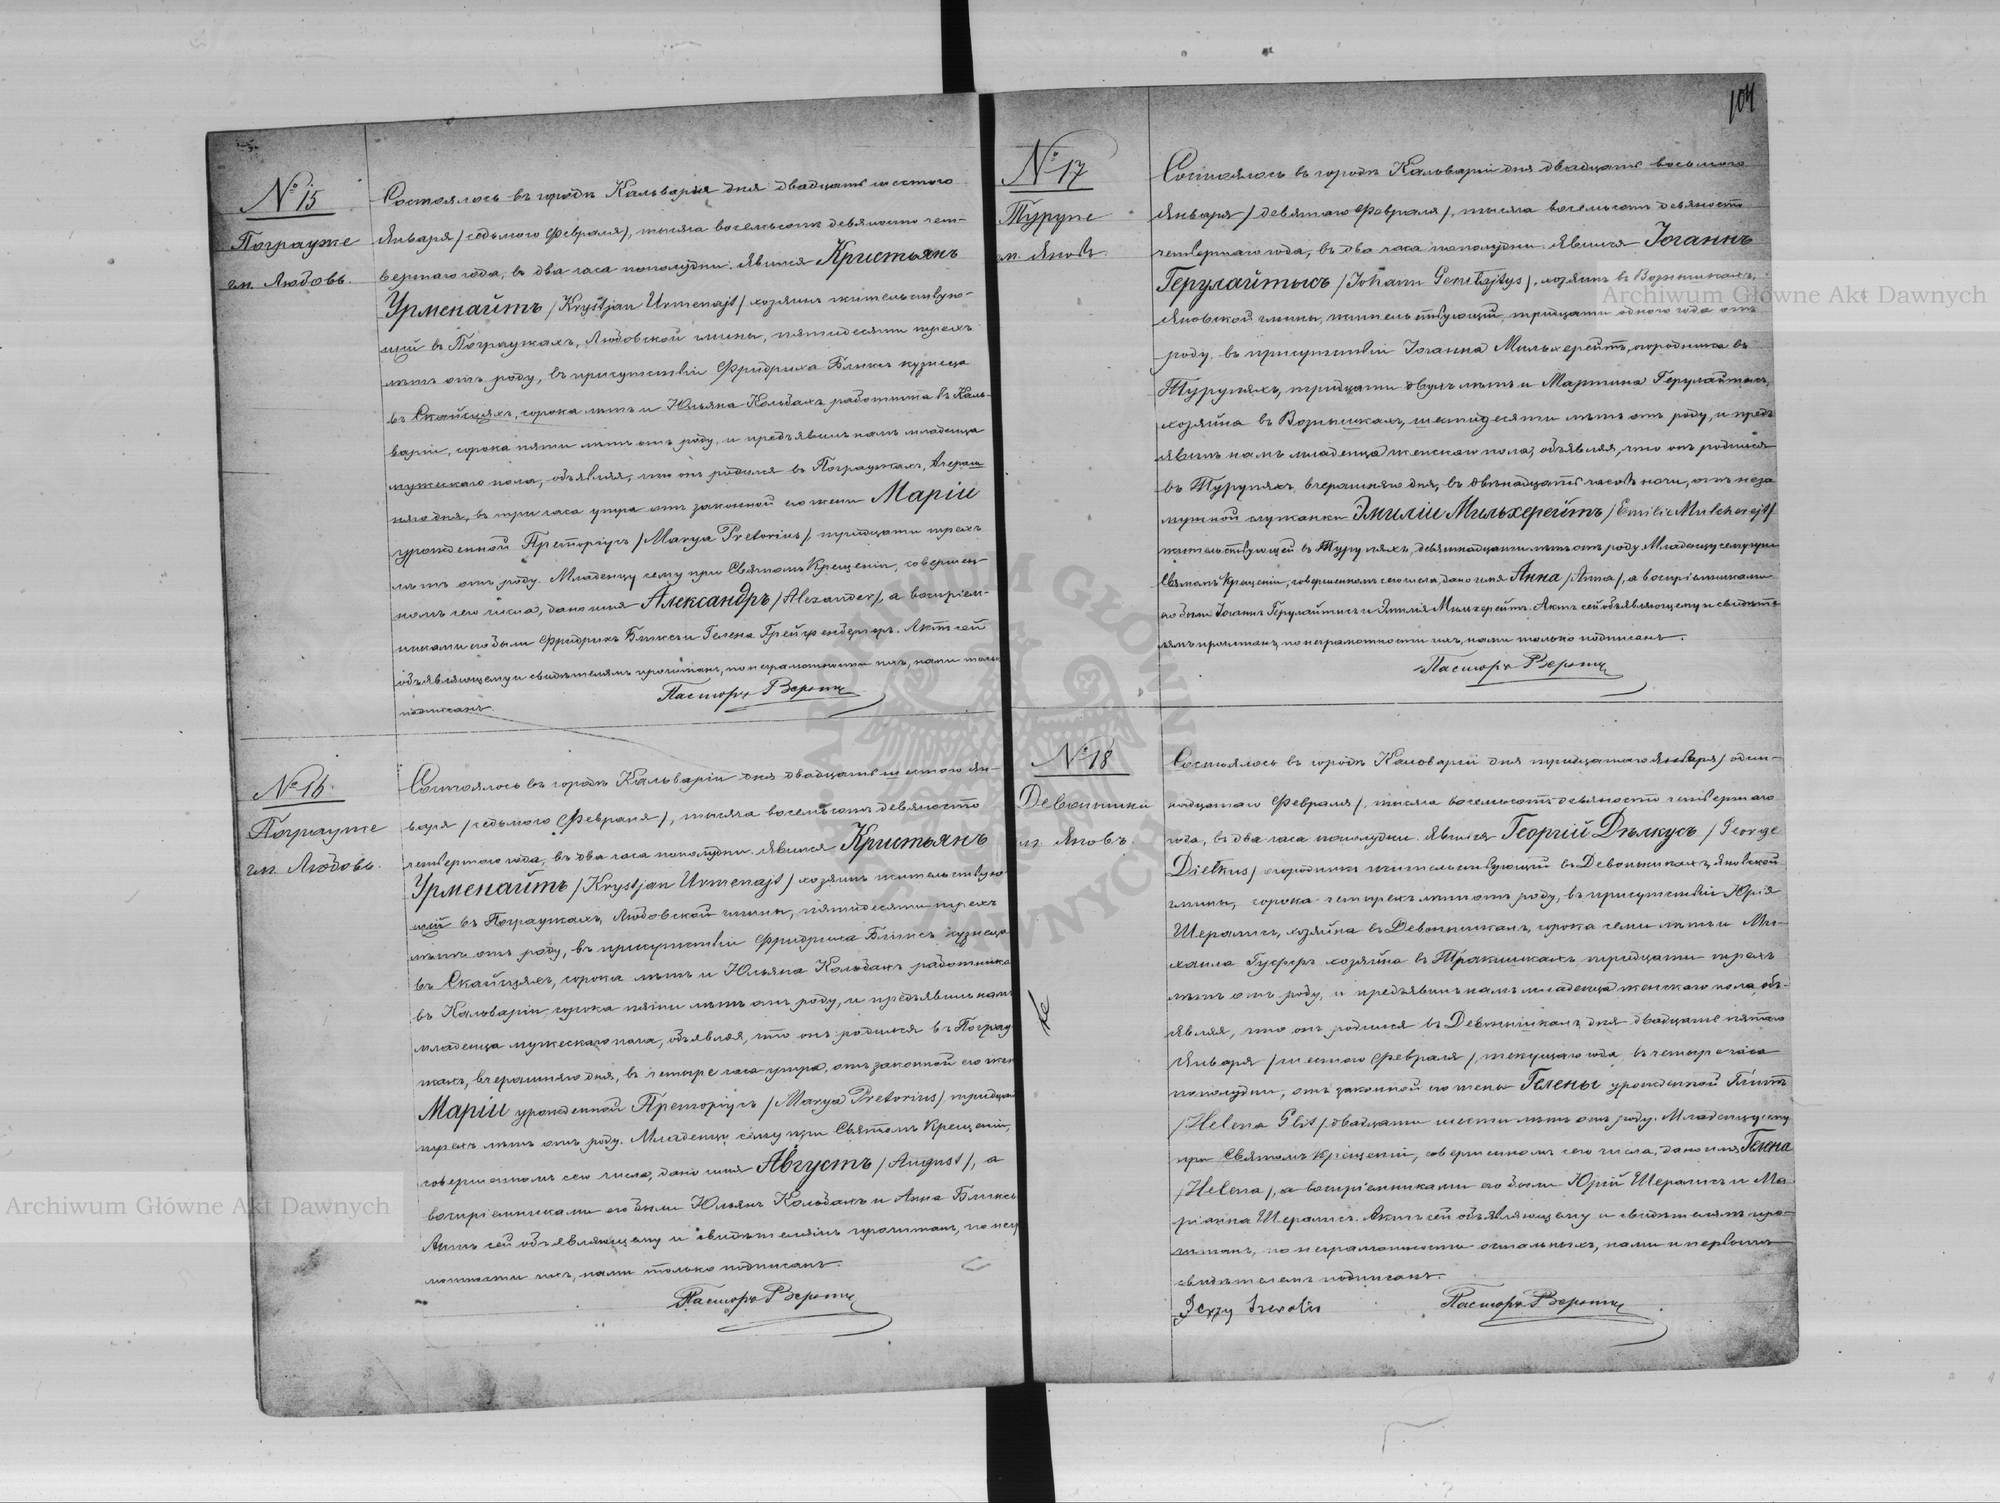 № 15
Пограуже
гм. Любовь.
Состоялось въ городѣ Кальварiи дня двадцать шестого
Января /седьмого Февраля/, тысяча восемьсотъ девяносто чет-
вертаго года, въ два часа пополудни. Явился Кристьянъ
Урменайтъ /Krystjan Urmenajt/ хозяинъ жительствую-
щiй въ Пограужахъ, Любовской гмины, пятидесяти трехъ
лѣтъ отъ роду, въ присутствiи Фридриха Бликсъ кузнеца
въ Скайсцяхъ, сорока лѣтъ и Юльяна Кольбахъ, работника въ Каль-
варiи, сорока пяти лѣтъ отъ роду, и предъявилъ намъ младенца
мужескаго пола, объявляя, что онъ родился въ Пограужахъ, вчераш-
няго дня, въ три часа утра отъ законной его жены Марiи
урожденной Преторiусъ /Marya Pretorius/, тридцати трехъ
лѣтъ отъ роду. Младенцу сему при Святомъ Крещенiи, совершен-
номъ сего числа, дано имя Александръ /Alexander/, а воспрiем-
никами его были Фридрихъ Бликсъ и Гелена Грейфенбергеръ. Актъ сей
объявляющему и свидѣтелямъ прочитанъ, по неграмотности ихъ, нами только
подписанъ.
Пасторъ
№ 16.
Пограуже
гм. Любовь.
Состоялось въ городѣ Кальварiи дня двадцать шестого Ян-
варя /седьмого Февраля/, тысяча восемьсотъ девяносто
четвертаго года, въ два часа пополудни. Явился Кристьянъ
Урменайтъ /Krystjan Urmenajt/ хозяинъ жительствую-
щiй въ Пограужахъ, Любовской гмины, пятидесяти трехъ
лѣтъ отъ роду, въ присутствiи Фридриха Бликсъ кузнеца
въ Скайсцяхъ, сорока лѣтъ и Юльяна Кольбахъ работника
въ Кальварiи, сорока пяти лѣтъ отъ роду, и предъявилъ намъ
младенца мужескаго пола, объявляя, что онъ родился въ Пограу-
жахъ, вчерашняго дня, въ четыре часа утра, отъ законной его жены
Марiи урожденной Преторiусъ /Marya Pretorius/ тридцати
трехъ лѣтъ отъ роду. Младенцу сему при Святомъ Крещенiи,
совершенномъ сего числа, дано имя Августъ /August/, а
воспрiемниками его были Юльянъ Кольбахъ и Анна Бликсъ
Актъ сей объявляющему и свидѣтелямъ прочитанъ, по негра-
мотности ихъ, нами только подписанъ.
Пасторъ
104
№ 17
Турупе
гм. Яновъ.
Состоялось въ городѣ Кальварiи дня двадцать восьмого
Января /девятаго Февраля/, тысяча восемьсотъ девяносто
четвертаго года, въ два часа пополудни. Явился Iоганнъ
Герулайтысъ /Johann Gerulajtys/, хозяинъ въ
Яновской гмины, жительствующiй, тридцати одного года отъ
роду, въ присутствiи Iоганна Мильхерейтъ, огородника въ
Турупяхъ, тридцати двухъ лѣтъ и Мартина Герулайтысъ,
хозяина въ шестидесяти лѣтъ отъ роду, и предъ-
явилъ намъ младенца женскаго пола, объявляя, что онъ родился
въ Турупяхъ, вчерашняго дня, въ двѣнадцать часовъ ночи, отъ неза-
мужной служанки Эмилiи Мильхерейтъ /Emilie Milcherejt/
жительствующей въ Турупяхъ, девятнадцати лѣтъ отъ роду. Младенцу сему при
Святомъ Крещенiи, совершенномъ сего числа, дано имя Анна /Anna/, а воспрiемниками
его были Iоганнъ Герулайтысъ и Эмилiя Мильхерейтъ. Актъ сей объявляющему и свидѣте-
лямъ прочитанъ, по неграмотности ихъ, нами только подписанъ.
Пасторъ
№ 18
Девонишки
гм. Яновъ.
Состоялось въ городѣ Кальварiи дня тридцатаго Января /один-
надцатаго Февраля/, тысяча восемьсотъ девяносто четвертаго
года, въ два часа пополудни. Явился Георгiй Дѣлкусъ /George
Dielkus/ огородникъ жительствующiй въ Девонишкахъ, Яновской
гмины, сорока четырехъ лѣтъ отъ роду, въ присутствiи Юрiя
Шералисъ, хозяина въ Девонишкахъ, сорока семи лѣтъ и Ми-
хаила хозяина въ Тракишкахъ тридцати трехъ
лѣтъ отъ роду, и предъявилъ намъ младенца женскаго пола, объ-
являя, что онъ родился въ Девонишкахъ дня двадцать пятаго
Января /шестого Февраля/, текущаго года, въ четыре часа
пополудни, отъ законной его жены Гелены урожденной Глитъ
/Helena Glit/ двадцати шести лѣтъ отъ роду. Младенцу сему
при Святомъ Крещенiи, совершенномъ сего числа, дано имя Гелена
/Helena/, а воспрiемниками его были Юрiй Шералисъ и Ма-
рiанна Шералисъ. Актъ сей объявляющему и свидѣтелямъ про-
читанъ, по неграмотности остальныхъ, нами и первымъ
свидѣтелемъ подписанъ.
Пасторъ
Archiwum Główne Akt Dawnych
Archiwum Główne Akt Dawnych